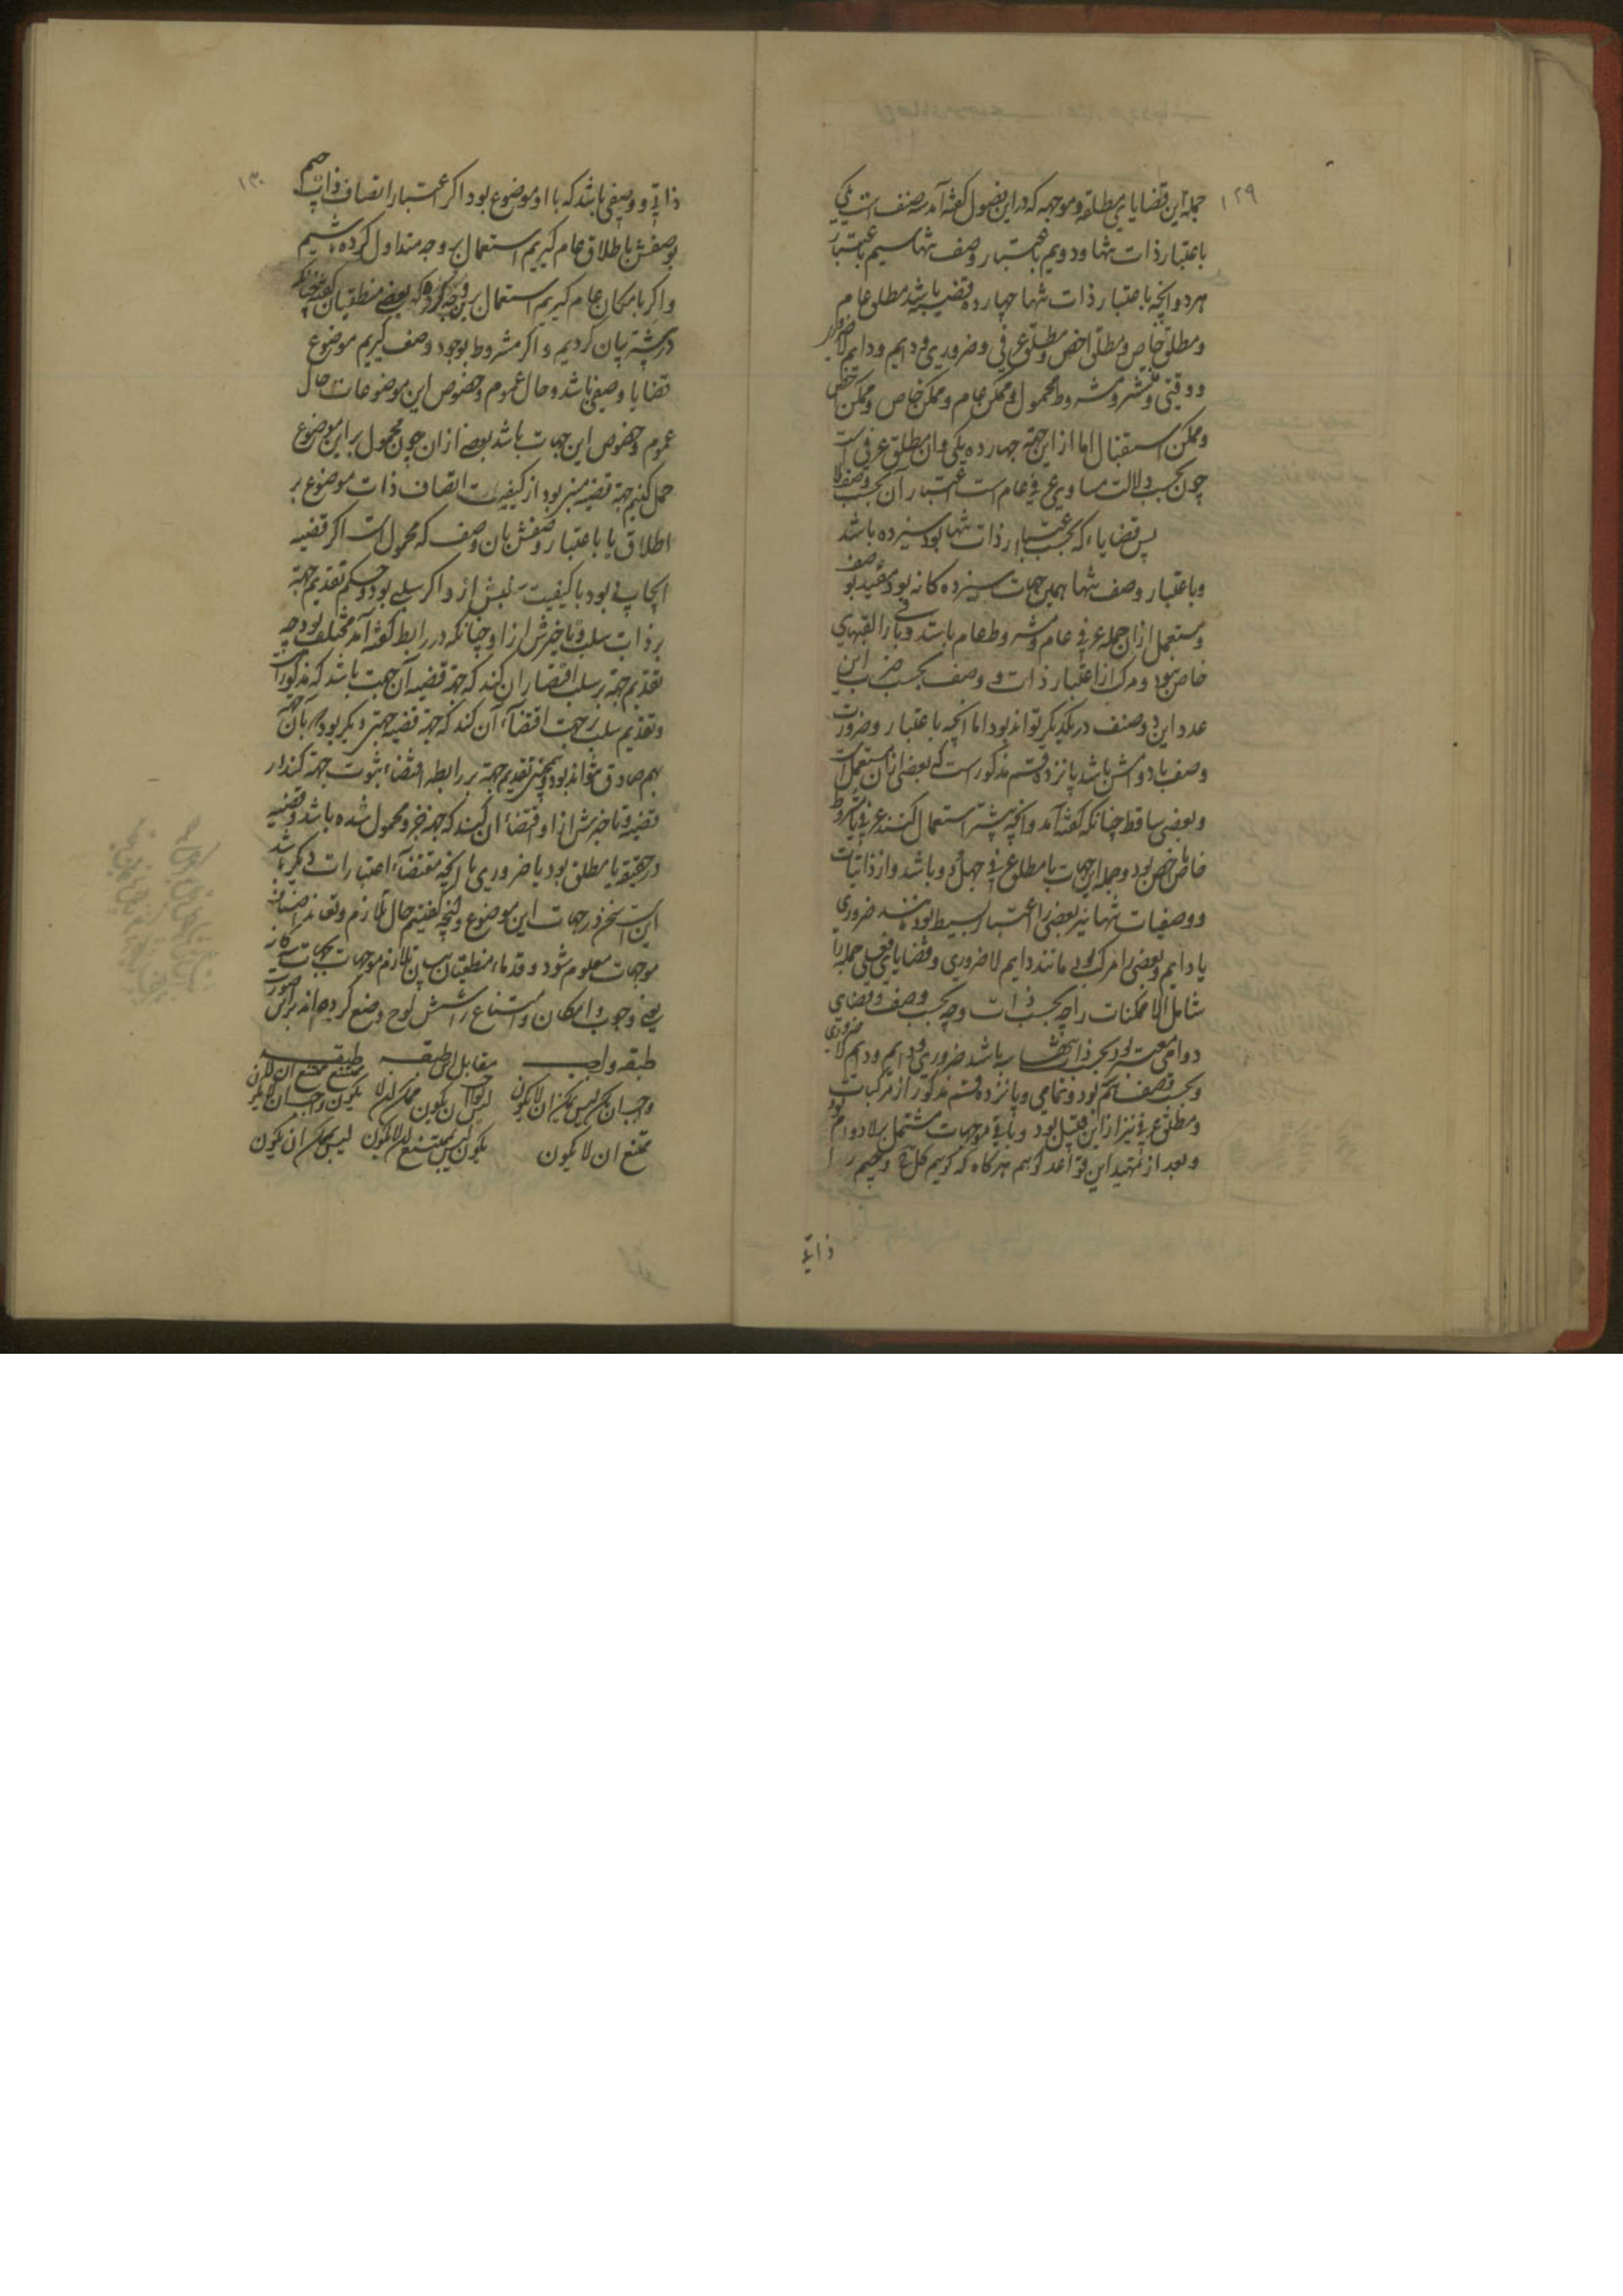 ۱۲۹
جمله این قضایای مطلقه و موجهه که در این فصول گفته آمد سه صنف است یکی
باعتبار ذات تنها و دویم باعتبار وصف تنها سیم باعتبار
هردو و آنچه باعتبار ذات تنها چهارده قضیه باشد مطلق عام
و مطلق خاص و مطلق اخص و مطلق عرفی و ضروری و دایم و دایم لاضروری
و وقتی و منتشر و مشروط محمول و ممکن عام و ممکن خاص و ممکن اخص
و ممکن استقبال اما از این جمله چهارده یکی و آن مطلق عرفی است
چون بحسب دلالت مساوی عرفی عام است اعتبار آن بحسب وصف
پس قضایاء که بحسب اعتبار ذات تنها بود سیزده باشد
و باعتبار وصف تنها همین جهات سیزده کانه بود مقید بوصف
و مستعمل ازان جمله عرفی عام و مشروط عام باشد و باراء القهری
خاص بود و مرکب از اعتبار ذات و وصف بحسب ضرب این
عدد این دو صنف در یکدیگر تواند بود اما آنچه باعتبار ضرورت
وصف یا دوامش باشد پانزده قسم مذکور است که بعضی ازان مستعمل است
و بعضی ساقط چنانکه گفته آمد و آنچه بیشتر استعمال کنند عرفی یا مشروط
خاص اخص بود و جمله این جهات با مطلق عرفی چهل و دو باشد و از ذاتیات
و وصفیات تنها نیز بعضی را اعتبار بسیط بود مانند ضروری
یا دایم و بعضی را مرکب بود مانند دایم لاضروری و قضایای فعلی جمله را
شامل الا ممکنات را چه بحسب ذات و چه بحسب وصف و قضایای
دوامی معتبر بود بحسب ذات تنها سه باشد ضروری و دایم و دایم لاضروری
و بحسب وصف هم بود و تمامی و پانزده قسم مذکور از مرکبات
و مطلق عرفی نیز ازاین قبیل بود و باقی موجهات مشتمل بر لادوام بود
و بعد از تمهید این قواعد گوییم هرگاه که گوییم کل ج و جیم را
ذاتی
۱۳۰
ذاتی و وصفی باشد که با او موضوع بود اگر اعتبار اتصاف ذات جیم
بوصفش باطلاق عام گیریم استعمال بر وجه متداول کرده باشیم
و اگر بامکان عام گیریم استعمال بر وجه که بعضی منطقیان گفته چنانکه
در پیشتر بیان کردیم و اگر مشروط بوجود وصف گیریم موضوع
قضایا وصفی باشد و حال عموم و خصوص این موضوعات حال
عموم و خصوص این جهات باشد بعد از ان چون محمول بر این موضوع
حمل کنیم جهة قضیه منبی بود از کیفیت اتصاف ذات موضوع بر
اطلاق یا باعتبار وصفش بان وصف که محمول است اگر قضیه
ایجابی بود یا کیفیت سلبش از و اگر سلبی بود و حکم تقدیم جهة
بر ذات سلب و تاخیرش ازاو چنانکه در رابط گفته آمد مختلف بود چه
تقدیم جهة بر سلب اقتضاء ان کند که جهة قضیه آن جهت باشد که مذکور است
و تقدیم سلب بر جهت اقتضاء آن کند که جهة قضیه جهتی دیگر بود که با آن جهة
بهم صادق نتواند بود و همچنین تقدیم جهة بر رابطه اقتضاء ثبوت جهة کند در
قضیه و تاخیرش ازاو اقتضاء ان کند که جهة جزو محمول شده باشد و قضیه
در حقیقة یا مطلق بود یا ضروری یا آنچه مقتضاء اعتبارات دیگر باشد
این است سخن در جهات این موضوع و آنچه گفتیم حال تلازم و تعاند اصناف
موجهات معلوم شود و قدماء منطقیان بیان تلازم موجهات بجهات سه کانه
یعنی وجوب و امکان و امتناع را شش لوح وضع کرده اند براین صورت
طبقه واجب مقابل این طبقه طبقه ممتنع
واجب ان یکون لیس یمکن ان لا یکون لیس بواجب ان یکون ممکن ان لا یکون ممتنع ان یکون واجب ان لا یکون
ممتنع ان لا یکون لیس بممتنع ان لا یکون لیس یمکن ان یکون